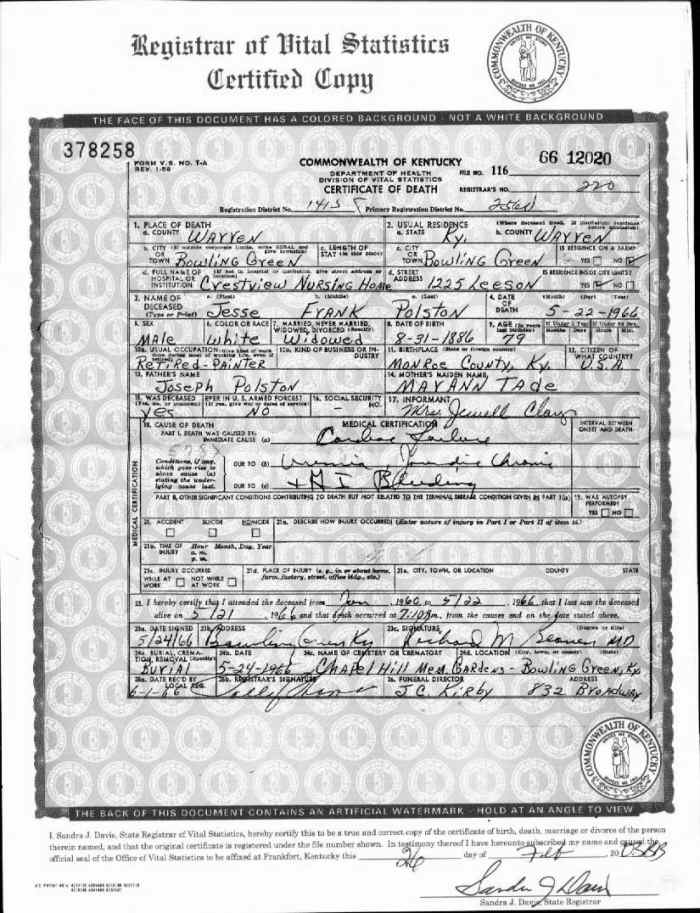 Registrar of Vital Statistics
Certified Copy
COMMONWEALTH OF KENTUCKY
THE FACE OF THIS DOCUMENT HAS A COLORED BACKGROUND - NOT A WHITE BACKGROUND
378258
FORM V.S. NO. 1-A
COMMONWEALTH OF KENTUCKY
DEPARTMENT OF HEALTH
DIVISION OF VITAL STATISTICS
CERTIFICATE OF DEATH
FILE NO. 116 66 12020
REGISTRAR'S NO. 220
Registration District No. 1415 Primary Registration District No.
1. PLACE OF DEATH
a. COUNTY Warren
2. USUAL RESIDENCE
a. STATE Ky. b. COUNTY Warren
b. CITY OR TOWN Bowling Green
c. LENGTH OF
c. CITY OR TOWN Bowling Green
IS RESIDENCE ON A FARM?
YES NO
d. FULL NAME OF HOSPITAL OR INSTITUTION Crestview Nursing Home
d. STREET ADDRESS 1225 Leeson
IS RESIDENCE INSIDE CITY LIMITS?
YES NO
3. NAME OF DECEASED (Type or Print)
a. (First) Jesse b. (Middle) Frank c. (Last) Polston
4. DATE OF DEATH (Month) (Day) (Year) 5-22-1966
5. SEX Male
6. COLOR OR RACE White
7. MARRIED, NEVER MARRIED, WIDOWED, DIVORCED Widowed
8. DATE OF BIRTH 8-31-1886
9. AGE 79
10a. USUAL OCCUPATION Retired-Painter
KIND OF BUSINESS OR INDUSTRY
11. BIRTHPLACE Monroe County, Ky.
12. CITIZEN OF WHAT COUNTRY? U.S.A.
13. FATHER'S NAME Joseph Polston
14. MOTHER'S MAIDEN NAME Mary Ann Tade
15. WAS DECEASED EVER IN U. S. ARMED FORCES? Yes No
16. SOCIAL SECURITY NO. -
17. INFORMANT Mrs. Jewell Clay
18. CAUSE OF DEATH MEDICAL CERTIFICATION INTERVAL BETWEEN ONSET AND DEATH
PART I. DEATH WAS CAUSED BY:
IMMEDIATE CAUSE (a) Cardiac Failure
Conditions, if any, which gave rise to above cause (a) stating the underlying cause last.
DUE TO (b) Uremia Chronic
DUE TO (c) + G I Bleeding
MEDICAL CERTIFICATION
PART II. OTHER SIGNIFICANT CONDITIONS CONTRIBUTING TO DEATH BUT NOT RELATED TO THE TERMINAL DISEASE CONDITION GIVEN IN PART I(a)
19. WAS AUTOPSY PERFORMED?
YES NO
ACCIDENT SUICIDE HOMICIDE
DESCRIBE HOW INJURY OCCURRED (Enter nature of injury in Part I or Part II of item 18.)
TIME OF INJURY Hour Month, Day, Year
a. m.
p. m.
INJURY OCCURRED
WHILE AT WORK NOT WHILE AT WORK
PLACE OF INJURY (e. g., in or about home, farm, factory, street, office bldg., etc.)
CITY, TOWN, OR LOCATION COUNTY STATE
22. I hereby certify that I attended the deceased from Jan, 1960, to 5/22, 1966, that I last saw the deceased
alive on 5/21, 1966 and that death occurred at 7:10 m., from the causes and on the date stated above.
23a. DATE SIGNED 5/24/66
23b. ADDRESS Bowling Green Ky
23c. SIGNATURE Richard M. MD
24a. BURIAL, CREMATION, REMOVAL Burial
24b. DATE 5-24-1966
24c. NAME OF CEMETERY OR CREMATORY Chapel Hill Mem. Gardens -
24d. LOCATION (City, town, or county) (State) Bowling Green, Ky.
DATE REC'D BY LOCAL REG. 6-1-66
REGISTRAR'S SIGNATURE
FUNERAL DIRECTOR J.C. Kirby
ADDRESS 832 Broadway
COMMONWEALTH OF KENTUCKY
THE BACK OF THIS DOCUMENT CONTAINS AN ARTIFICIAL WATERMARK - HOLD AT AN ANGLE TO VIEW
I, Sandra J. Davis, State Registrar of Vital Statistics, hereby certify this to be a true and correct copy of the certificate of birth, death, marriage or divorce of the person
therein named, and that the original certificate is registered under the file number shown. In testimony thereof I have hereunto subscribed my name and caused the
official seal of the Office of Vital Statistics to be affixed at Frankfort, Kentucky this 26 day of Feb 20
Sandra J Davis
Sandra J. Davis, State Registrar